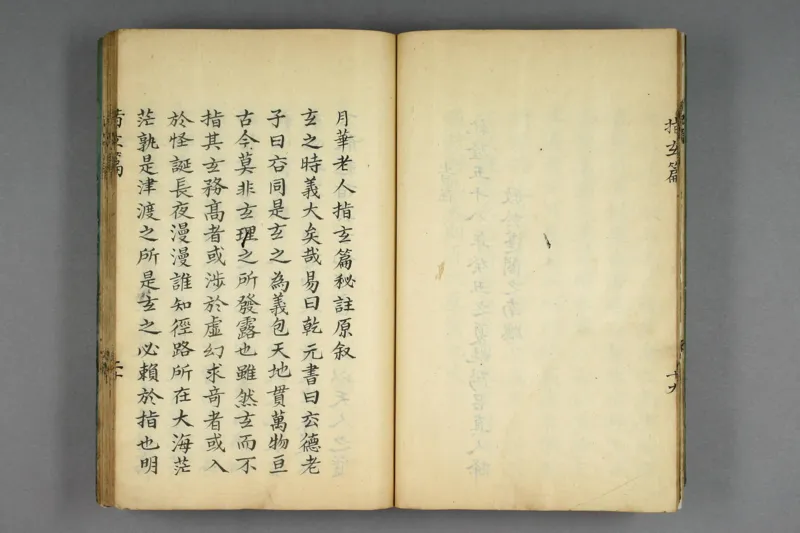 指玄篇
十九
月華老人指玄篇秘註原叙
玄之時義大矣哉易曰乾元書曰玄德老
子曰玄同是玄之為義包天地貫萬物亘
古今莫非玄理之所發露也雖然玄而不
指其玄務髙者或涉於虛幻求奇者或入
於怪誕長夜漫漫誰知徑路所在大海茫
茫孰是津渡之所是玄之必賴於指也明
指玄篇